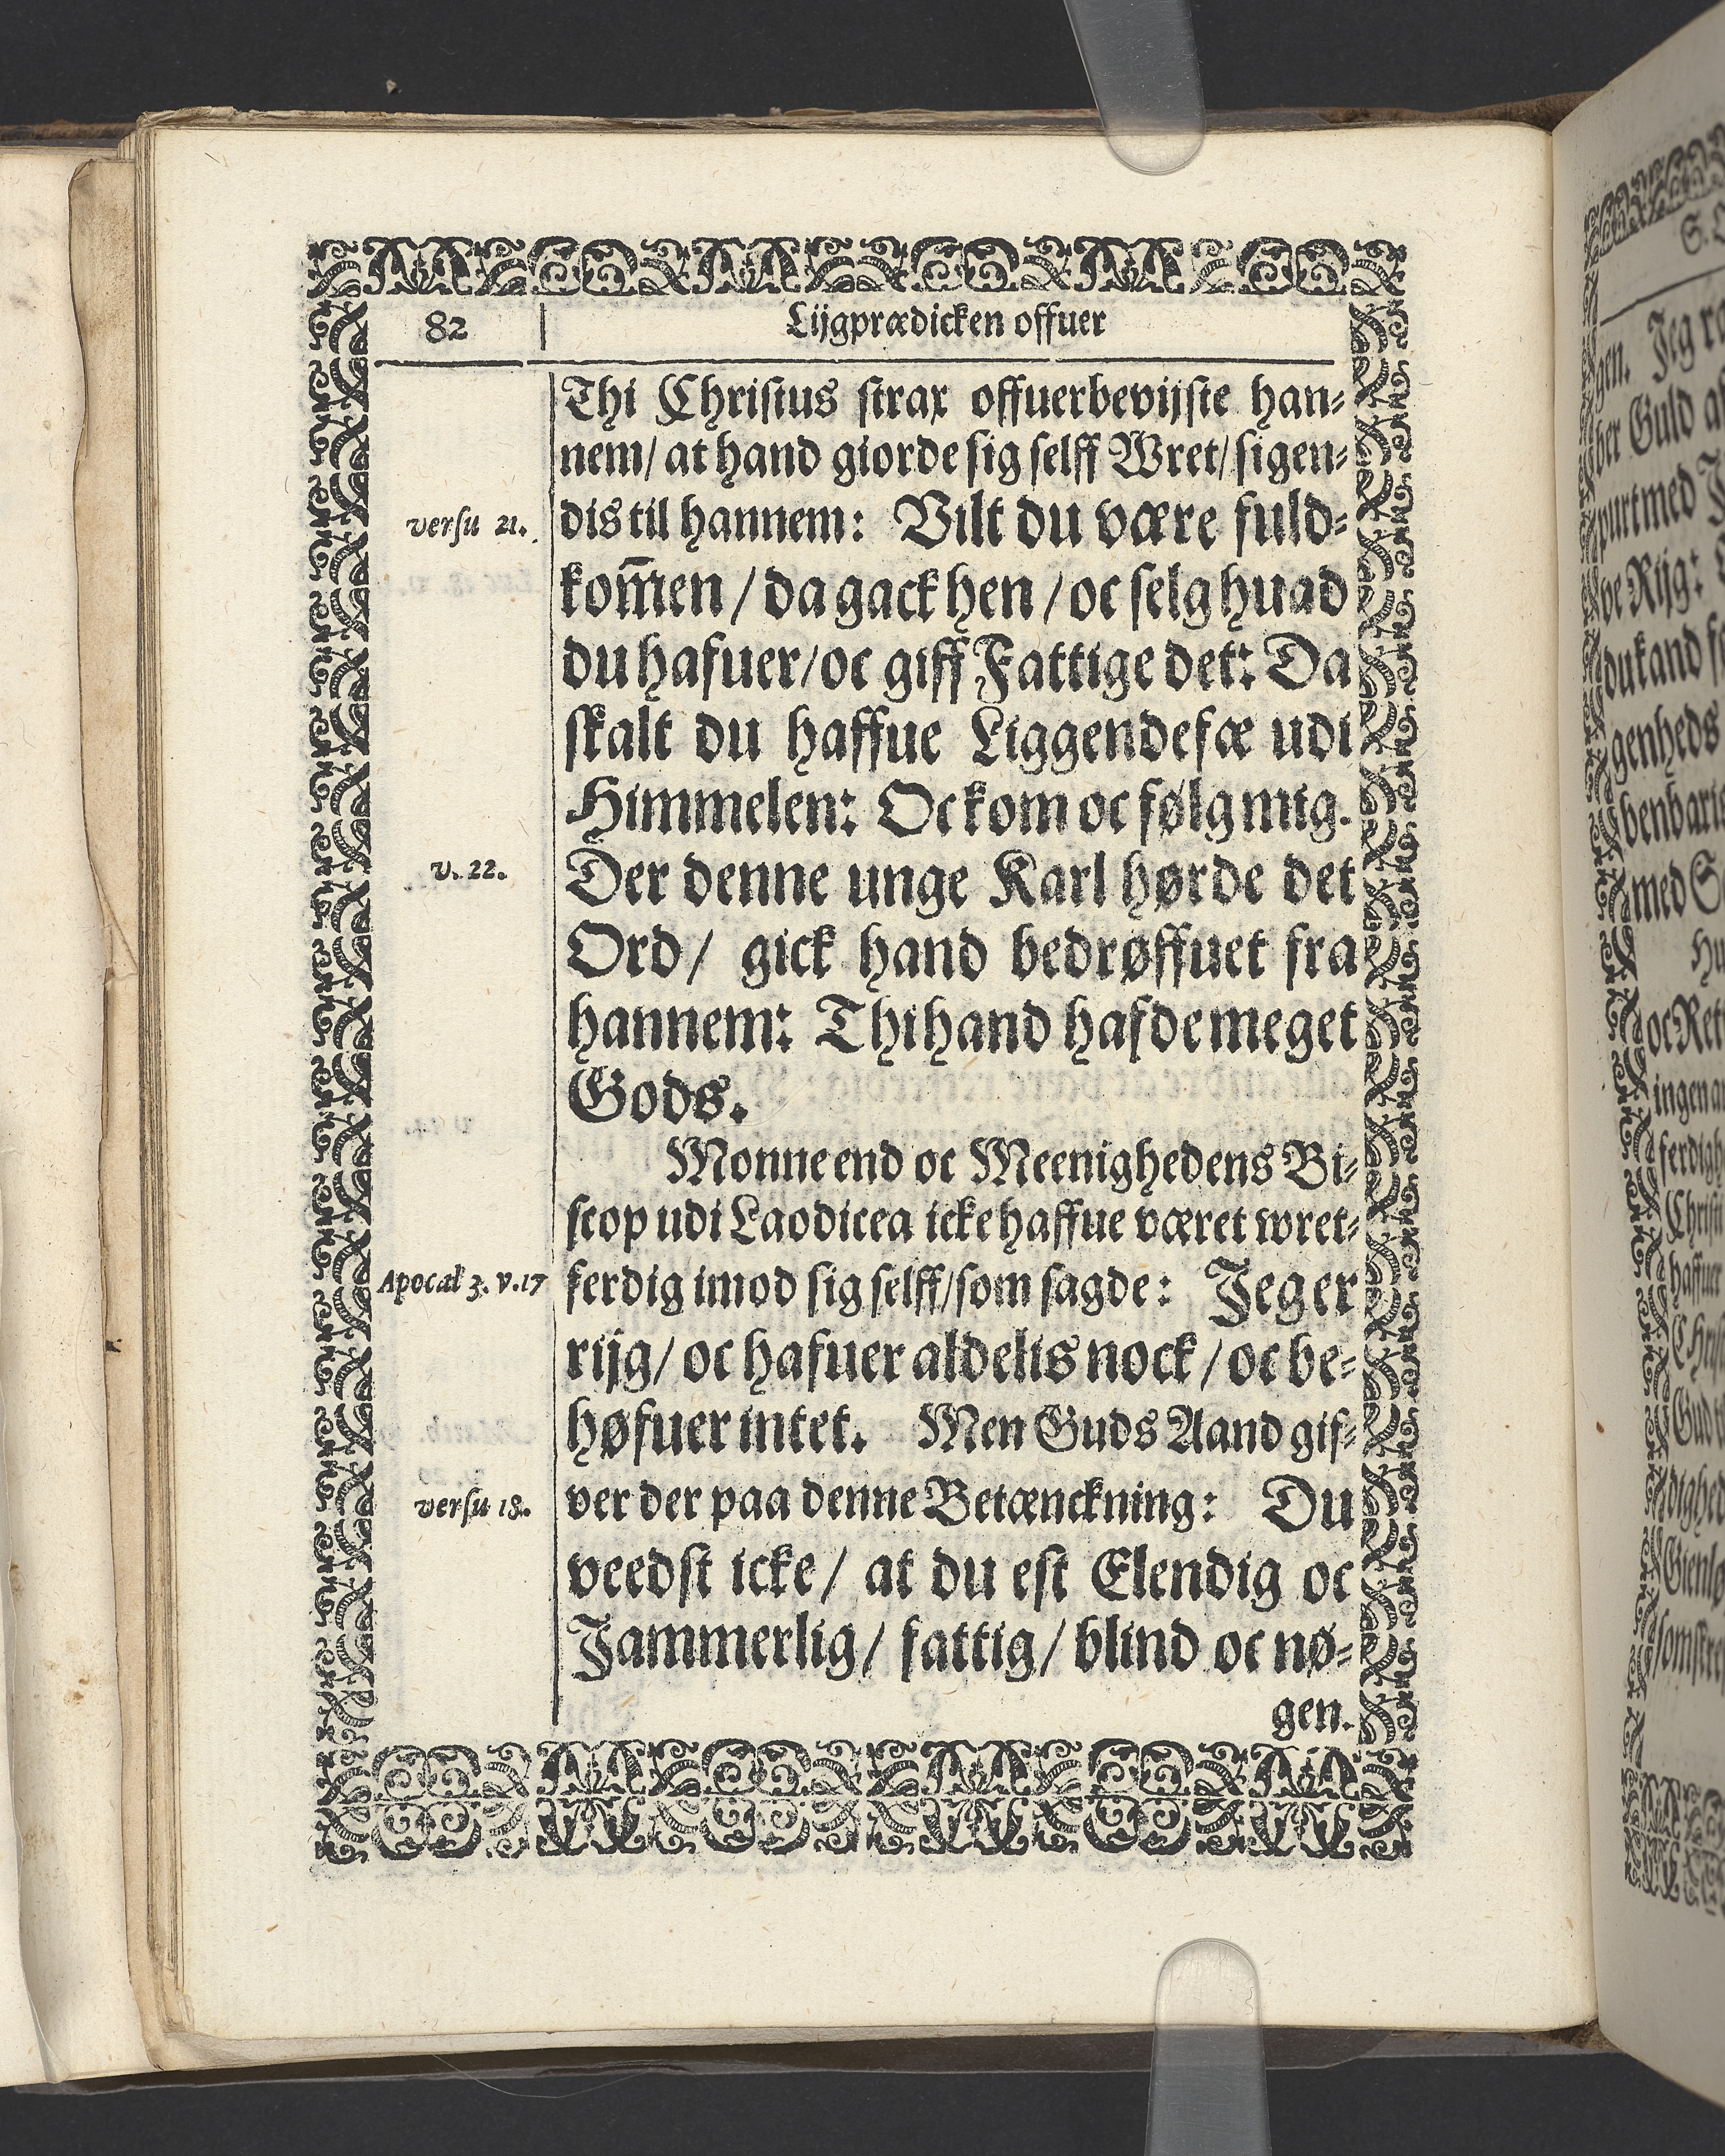 82
Lijgprædicken offuer
Thi Christus strax offuerbevijste han⸗
nem/ at hand giorde sig selff Wret/ sigen⸗
versu 21.
dis til hannem: Vilt du være fuld⸗
kom̃en / da gack hen / oc selg huad
du hafuer/ oc giff Fattige det: Da
skalt du haffue Liggendefæ udi
Himmelen: Oc kom oc følg mig.
v. 22.
Der denne unge Karl hørde det
Ord/ gick hand bedrøffuet fra
hannem: Thi hand hafde meget
Gods.
Monne end oc Meenighedens Bi⸗
scop udi Laodicea icke haffue været wret⸗
Apocal 3. v. 17
ferdig imod sig selff/ som sagde: Jeg er
rijg/ oc hafuer aldelis nock / oc be⸗
høfuer intet. Men Guds Aand gif⸗
versu 18.
ver der paa denne Betænckning: Du
veedst icke/ at du est Elendig oc
Jammerlig/ fattig/ blind oc nø⸗
gen.
gen. Jeg
ber Guld
purt med
ve Rijg:
du kand
genheds
med
oc Ret
ingen
ferdigh
Christ
haffuer
Gud
dighed